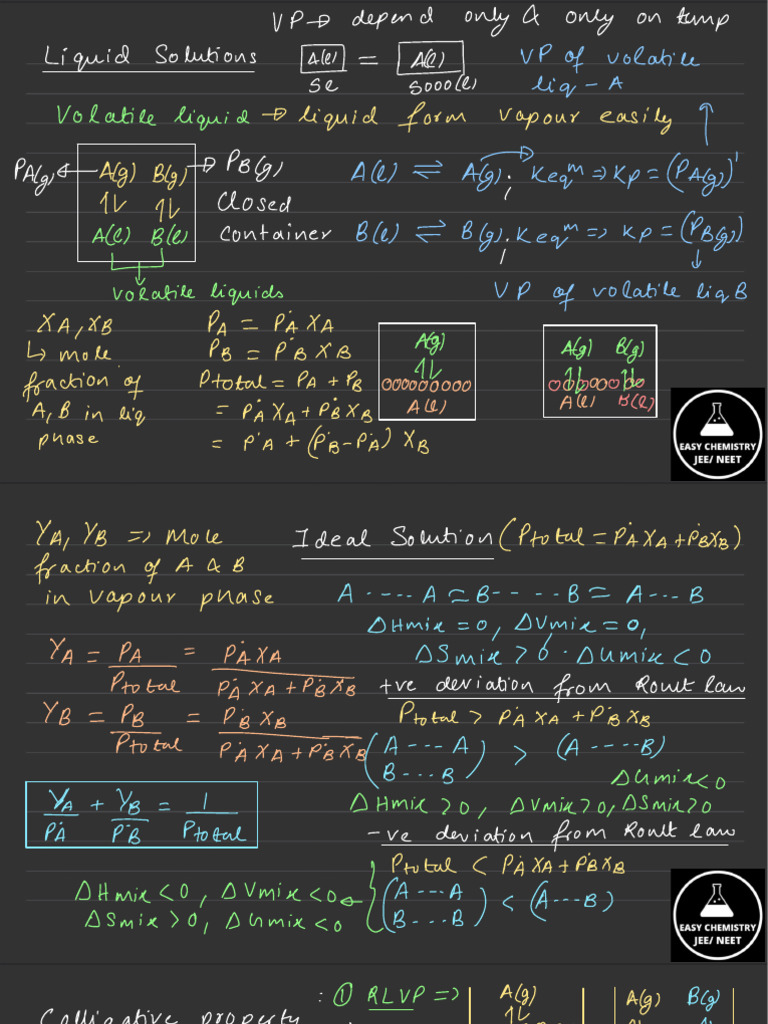 VP → depend only & only on temp
Liquid Solutions
A(l) = A(l)
5l 5000(l)
VP of volatile
liq - A
Volatile liquid → liquid form vapour easily
PA(g) ← A(g) B(g) → PB(g)
⇅ ⇅
A(l) B(l)
Closed
container
volatile liquids
A(l) ⇌ A(g); Keqm ⇒ Kp = (PA(g))'
B(l) ⇌ B(g); Keqm ⇒ Kp = (PB(g))
VP of volatile liq B
XA, XB
↳ mole
fraction of
A, B in liq
phase
PA = P°A XA
PB = P°B XB
Ptotal = PA + PB
= P°A XA + P°B XB
= P°A + (P°B - P°A) XB
A(g)
⇅
A(l)
A(g) B(g)
⇅ ⇅
A(l) B(l)
EASY CHEMISTRY
JEE/ NEET
YA, YB ⇒ Mole
fraction of A & B
in vapour phase
YA = PA / Ptotal = P°A XA / P°A XA + P°B XB
YB = PB / Ptotal = P°B XB / P°A XA + P°B XB
YA / P°A + YB / P°B = 1 / Ptotal
Ideal Solution (Ptotal = P°A XA + P°B XB)
A ---- A ≃ B ---- B ≃ A --- B
ΔHmix = 0, ΔVmix = 0,
ΔSmix > 0. ΔGmix < 0
+ve deviation from Roult law
Ptotal > P°A XA + P°B XB
(A --- A
B --- B) > (A ---- B)
ΔGmix < 0
ΔHmix > 0, ΔVmix > 0, ΔSmix > 0
-ve deviation from Roult law
Ptotal < P°A XA + P°B XB
(A --- A
B --- B) < (A --- B)
ΔHmix < 0, ΔVmix < 0 ←
ΔSmix > 0, ΔGmix < 0
EASY CHEMISTRY
JEE/ NEET
Colligative property
: ① RLVP ⇒
A(g)
A(g) B(g)